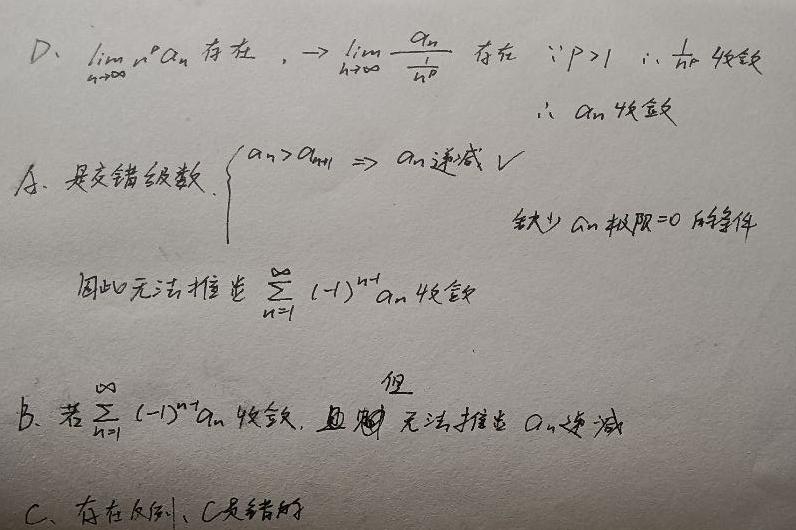 D、 lim n→∞ n^p an 存在 , → lim n→∞ an / (1/n^p) 存在 ∵ P>1 ∴ 1/n^p 收敛
∴ an 收敛
A、是交错级数、{ an > an+1 ⇒ an 递减 √
缺少 an 极限=0 的条件
因此无法推出 ∑ n=1 ∞ (-1)^{n-1} an 收敛
B、若 ∑ n=1 ∞ (-1)^{n-1} an 收敛、但 无法推出 an 递减
C、存在反例、C是错的